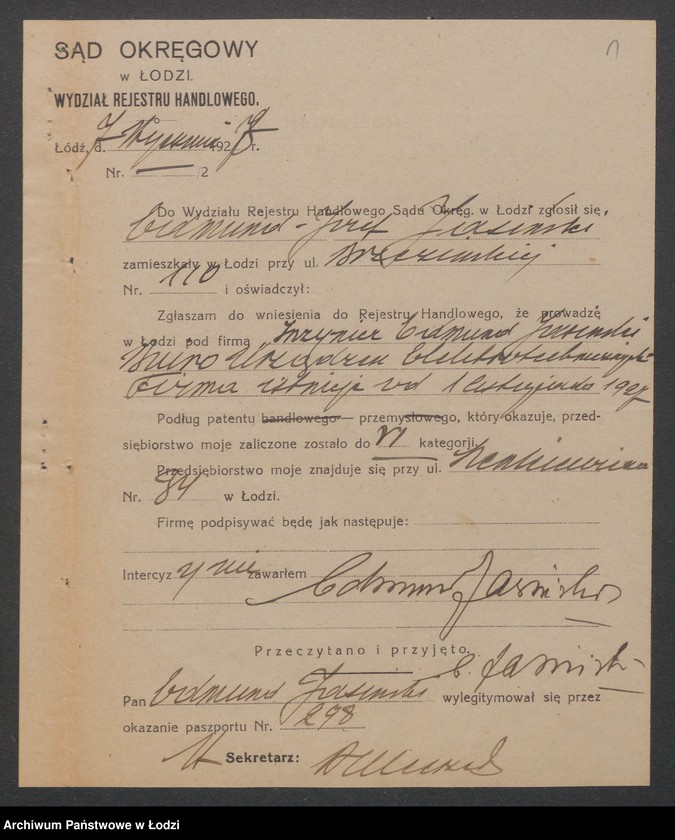 SĄD OKRĘGOWY
w ŁODZI.
WYDZIAŁ REJESTRU HANDLOWEGO.
Łódź, d. 7 192 7 r.
Nr. — /2
Do Wydziału Rejestru Handlowego Sądu Okręg. w Łodzi zgłosił się,
Edmund-Józef Jasiński
zamieszkały w Łodzi przy ul. Brzezińskiej
Nr. 110 i oświadczył:
Zgłaszam do wniesienia do Rejestru Handlowego, że prowadzę
w Łodzi pod firmą Inżynier Edmund Jasiński
Biuro Urządzeń Elektrotechnicznych
Firma istnieje od 1 listopada 1927
Podług patentu handlowego — przemysłowego, który okazuje, przed-
siębiorstwo moje zaliczone zostało do VI kategorji.
Przedsiębiorstwo moje znajduje się przy ul. Sienkiewicza
Nr. 84 w Łodzi.
Firmę podpisywać będę jak następuje:
Intercyzy nie zawarłem Edmund Jasiński
Przeczytano i przyjęto.
E. Jasiński
Pan Edmund Jasiński wylegitymował się przez
okazanie paszportu Nr. 298
Sekretarz:
Archiwum Państwowe w Łodzi